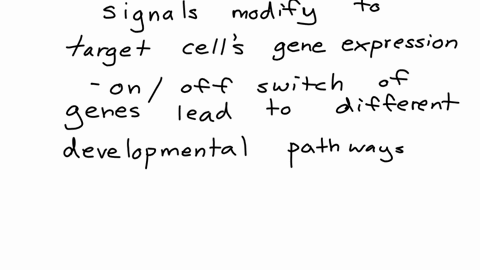 signals modify to
target cell's gene expression
- on / off switch of
genes lead to different
developmental pathways